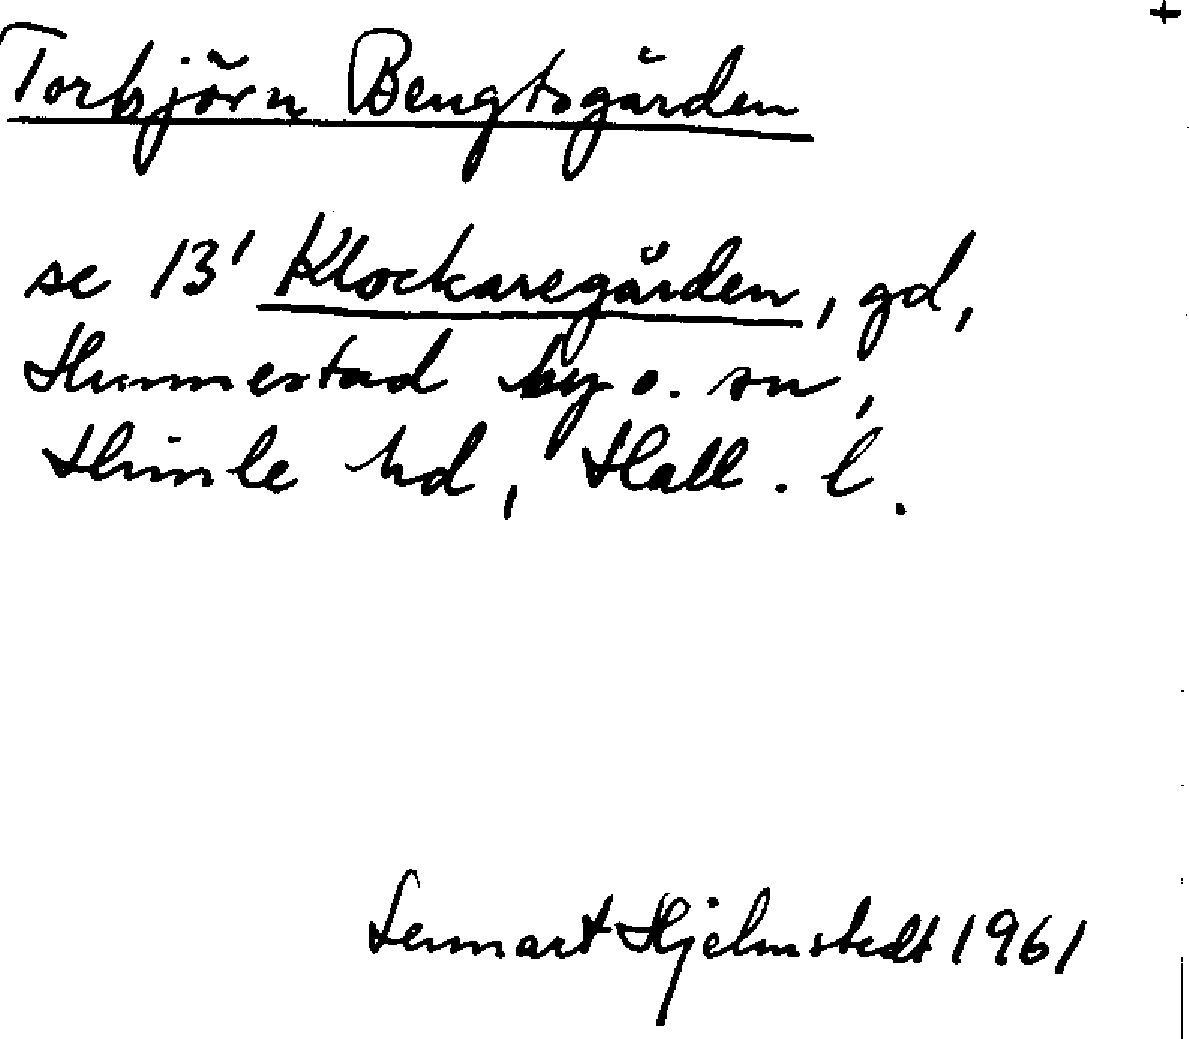 +
Torbjörn Bengtsgården
se 13' Klockaregården, gd,
Hunnestad by o. sn,
Himle hd, Hall. l.
Lennart Hjelmstedt 1961